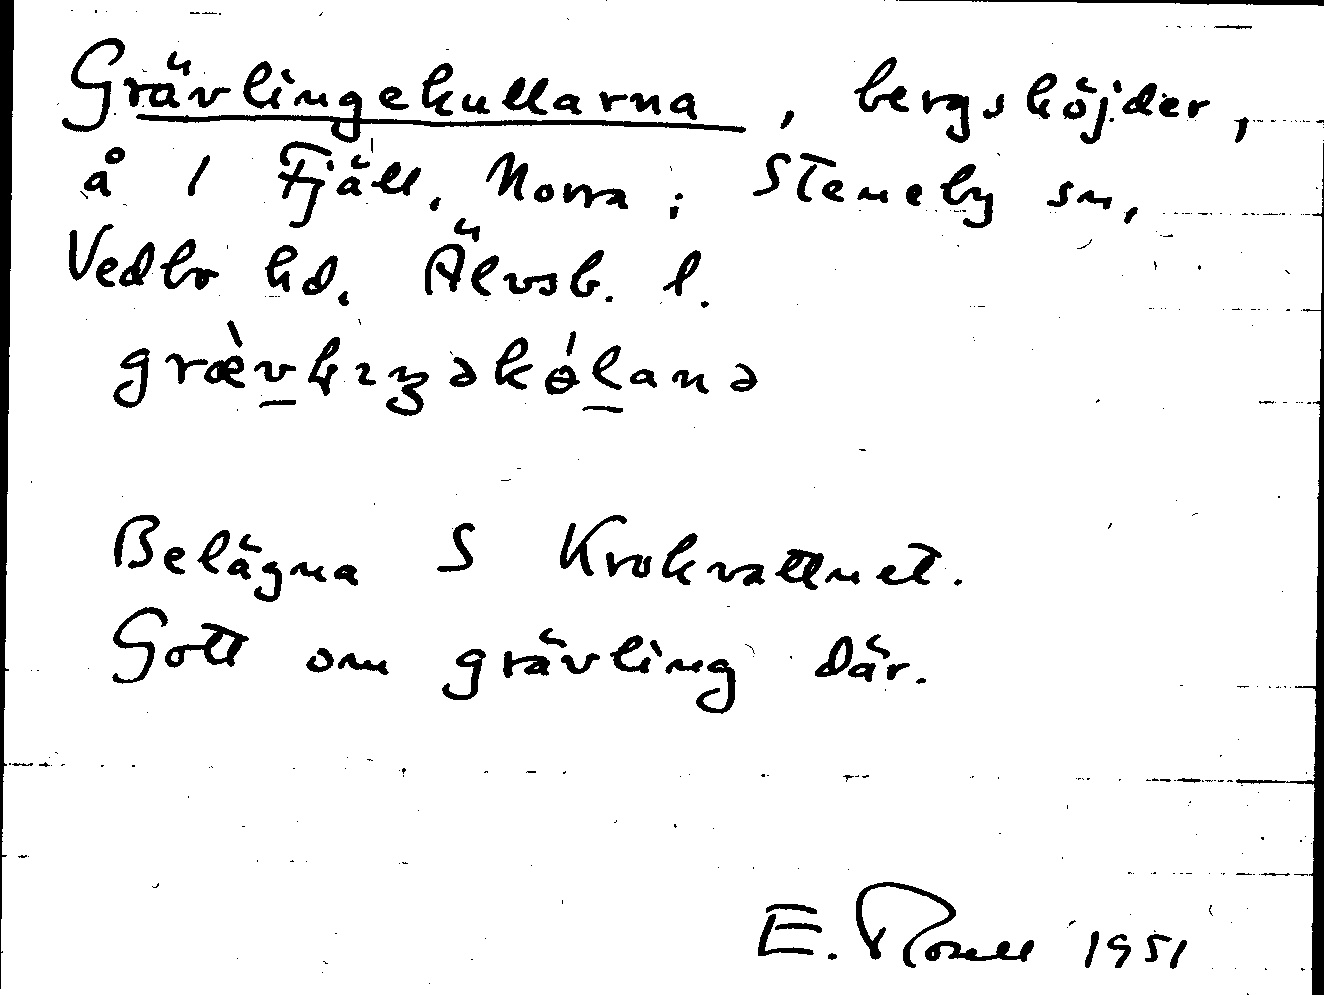 Grävlingekullarna, bergshöjder,
å 1 Fjäll, Norra; Steneby sn,
Vedbo hd. Älvsb. l.
Belägna S Krokvattnet.
Gott om grävling där.
E. Rosell 1951